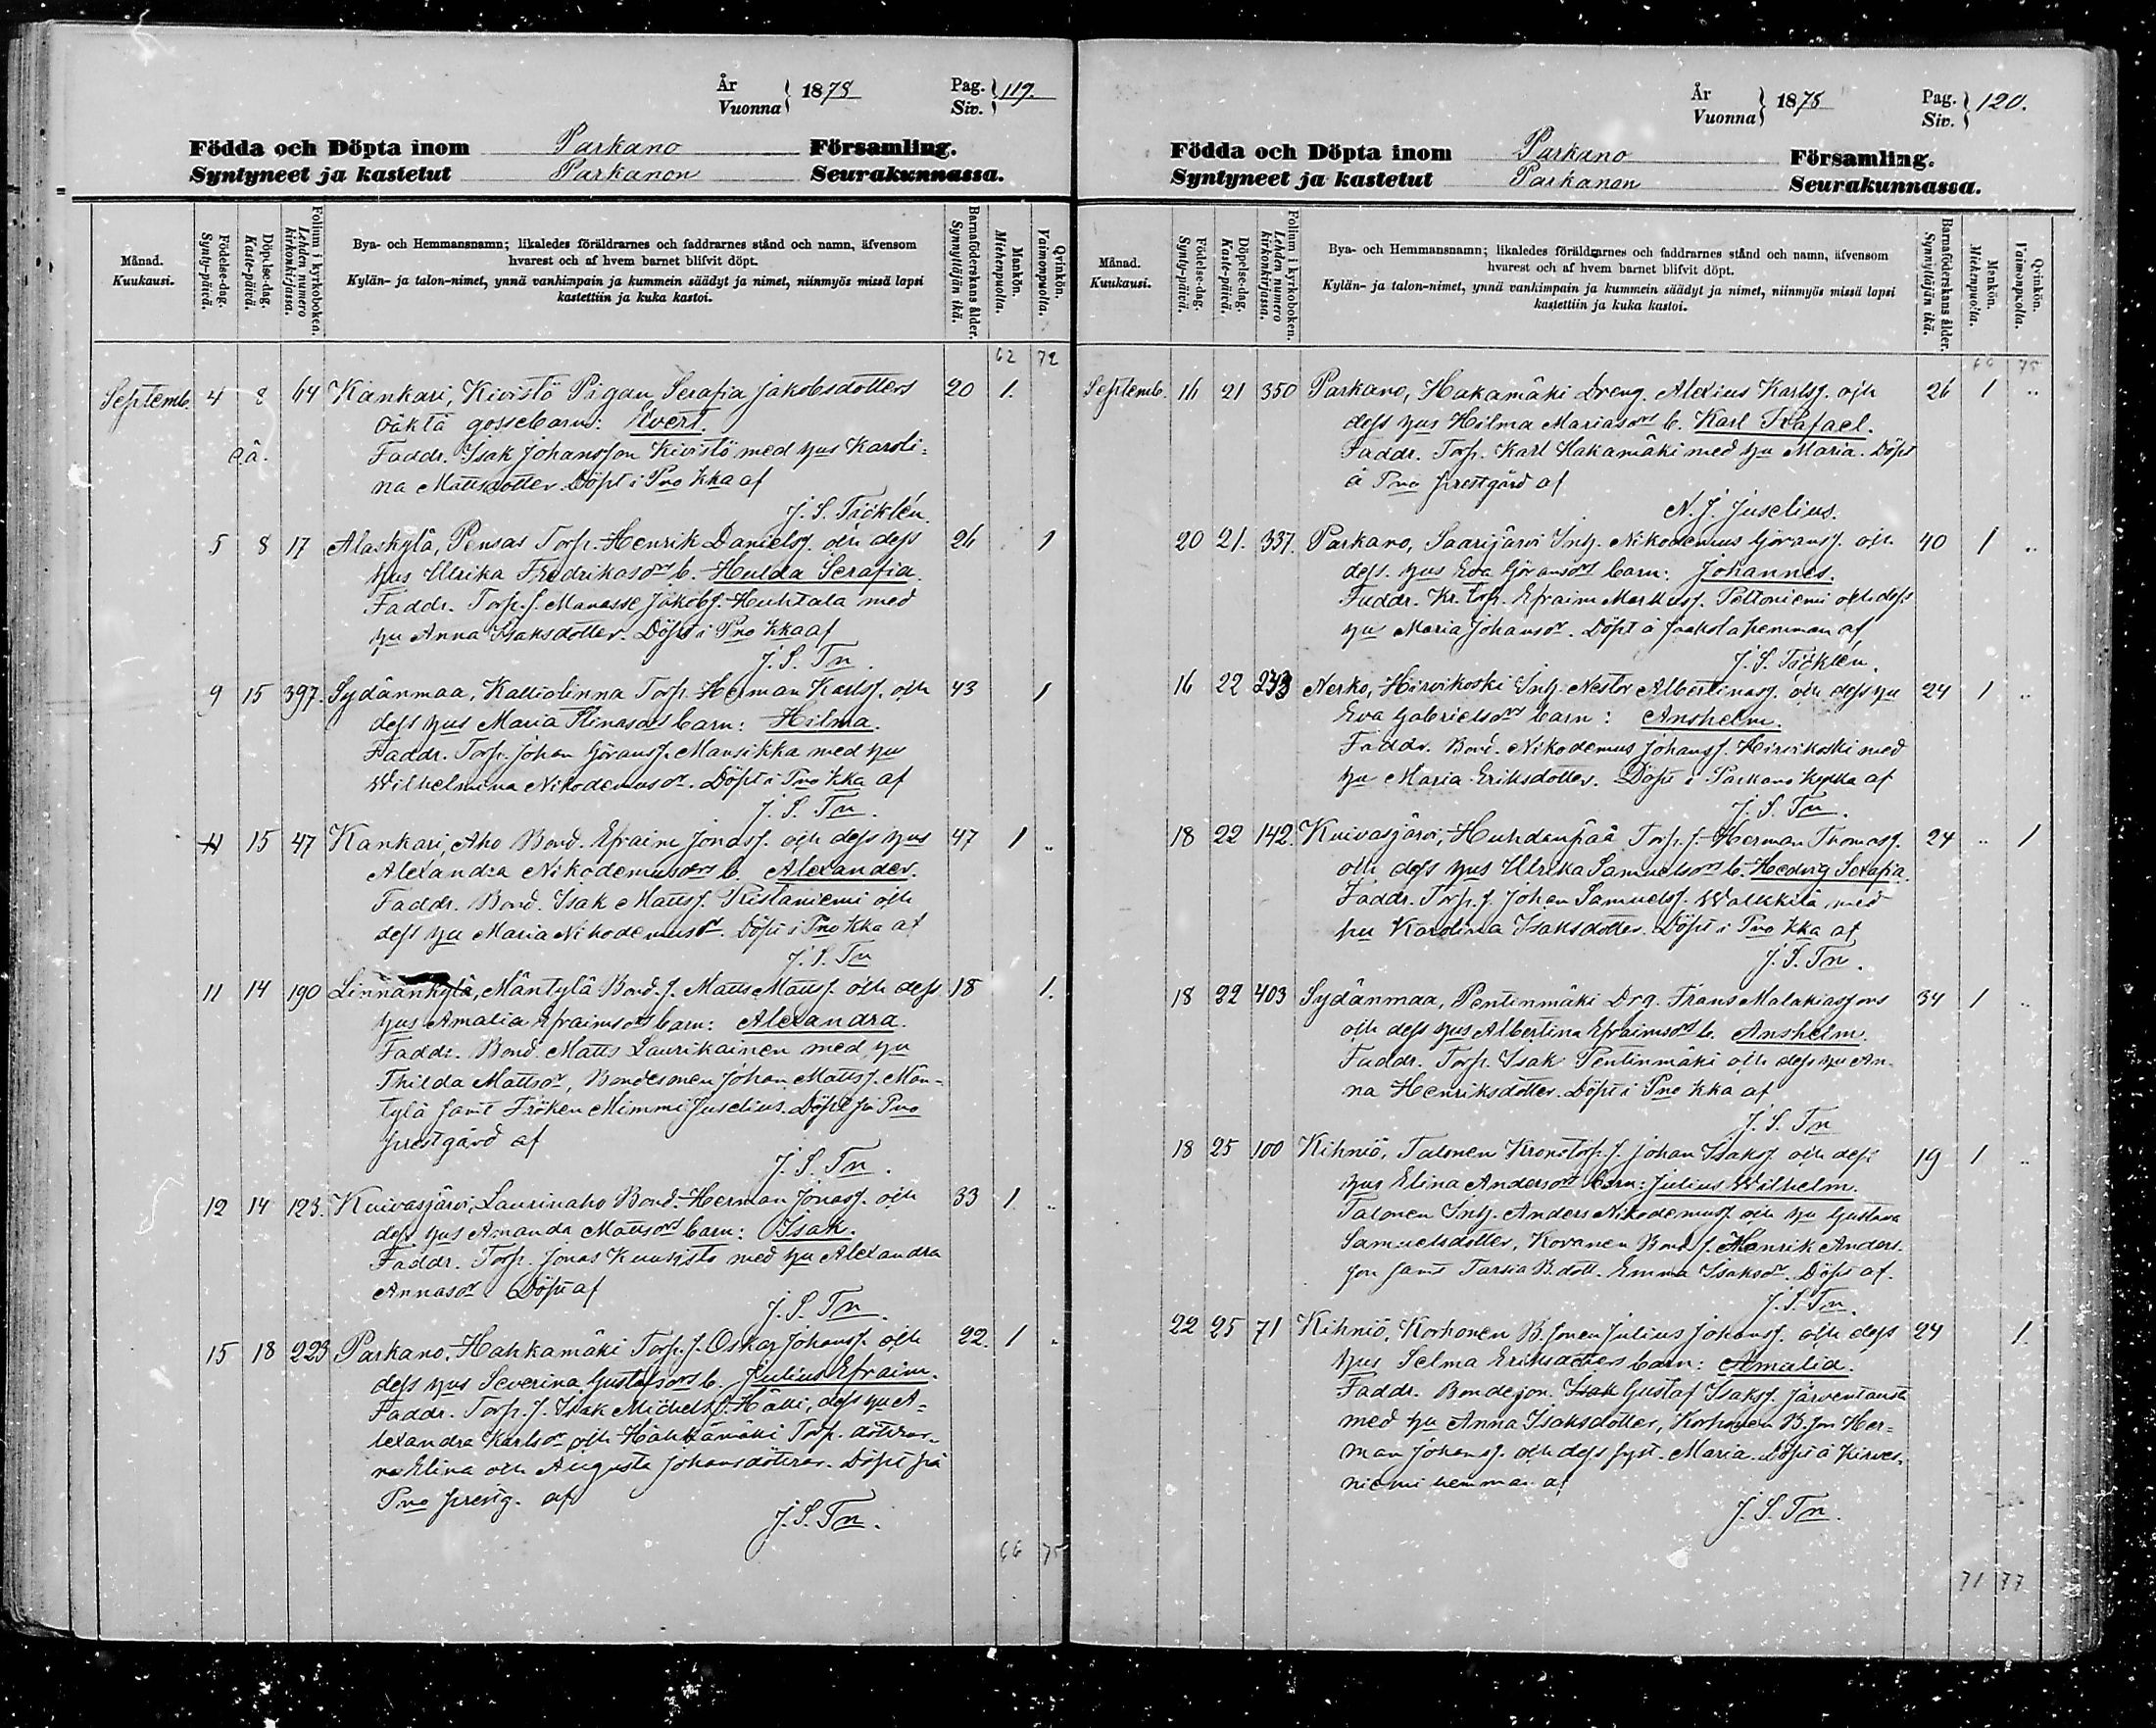 År
Vuonna } 1878
Pag.
Siv. } 119.
Födda och Döpta inom Parkano Församling.
Syntyneet ja kastetut Parkanon Seurakunnassa.
Månad.
Kuukausi.
Födelse-dag.
Synty-päivä.
Döpelse-dag.
Kaste-päivä.
Folium i kyrkoboken.
Lehden numero kirkonkirjassa.
Bya- och Hemmansnamn; likaledes föräldrarnes och faddrarnes stånd och namn, äfvensom
hvarest och af hvem barnet blifvit döpt.
Kylän- ja talon-nimet, ynnä vanhimpain ja kummein säädyt ja nimet, niinmyös missä lapsi
kastettiin ja kuka kastoi.
Barnaföderskans ålder.
Synnyttäjän ikä.
Mankön.
Miehenpuolta.
Qvinkön.
Vaimonpuolta.
62 72
Septemb. 4 8 64 Kankari, Kivistö Pigan Serafia Jakobsdotters 20 1.
oäkta gossebarn: Evert.
o.ä. Faddr. Isak Johansson Kivistö med hus Karoli-
na Mattsdotter. Döpt i Pno kka af
J. S. Tröklén.
5 8 17 Alaskylä, Pensas Torp. Henrik Danielss. och dess 26 1
hus Ulrika Fredrikasdrs b. Hulda Serafia.
Faddr. Torp. s. Manasse Jakobs. Huhtala med
hu Anna Isaksdotter. Döpt i Pno kka af
J. S. Tn.
9 15 397. Sydänmaa, Kalliolinna Torp. Herman Karls. och 43 1
dess hus Maria Stinasdrs barn: Hilma.
Faddr. Torp. Johan Görans. Mansikka med hu
Wilhelmina Nikodemusdr. Döpt i Pno kka af
J. S. Tn.
11 15 47 Kankari, Aho Bond. Efraim Jonass. och dess hus 47 1 „
Alexandra Nikodemusdrs b. Alexander.
Faddr. Bond. Isak Matts. Ristaniemi och
dess hu Maria Nikodemusdr. Döpt i Pno kka af
J. S. Tn
11 14 190 Linnankylä, Mäntylä Bond. s. Matts Matts. och dess 18 1.
hus Amalia Efraimsdrs barn: Alexandra.
Faddr. Bond. Matts Laurikainen med hu
Thilda Mattsdr, Bondesonen Johan Matts. Män-
tylä samt Fröken Mimmi Juselius. Döpt på Pno
prestgård af
J. S. Tn.
12 14 123. Kuivasjärvi, Laurinaho Bond. Herman Jonass. och 33 1 „
dess hus Amanda Mattsdrs barn: Isak.
Faddr. Torp. Jonas Kuusisto med hu Alexandra
Annasdr Döpt af
J. S. Tn.
15 18 223 Parkano, Hahkamäki Torp. s. Oskar Johans. och 22. 1 „
dess hus Severina Gustafsdrs b. Julius Efraim.
Faddr. Torp. s. Isak Michels. Hätti, dess hu A-
lexandra Karlsdr och Hahkamäki Torp. döttrar-
na Elina och Augusta Johansdöttrar. Döpt på
Pno prestg. af
J. S. Tn.
66 75
År
Vuonna } 1878
Pag.
Siv. } 120.
Födda och Döpta inom Parkano Församling.
Syntyneet ja kastetut Parkanon Seurakunnassa.
Månad.
Kuukausi.
Födelse-dag.
Synty-päivä.
Döpelse-dag.
Kaste-päivä.
Folium i kyrkoboken.
Lehden numero kirkonkirjassa.
Bya- och Hemmansnamn; likaledes föräldrarnes och faddrarnes stånd och namn, äfvensom
hvarest och af hvem barnet blifvit döpt.
Kylän- ja talon-nimet, ynnä vanhimpain ja kummein säädyt ja nimet, niinmyös missä lapsi
kastettiin ja kuka kastoi.
Barnaföderskans ålder.
Synnyttäjän ikä.
Mankön.
Miehenpuolta.
Qvinkön.
Vaimonpuolta.
66 75
Septemb. 16 21 350 Parkano, Hakamäki Dreng. Alexius Karls. och 26 1 „
dess hus Hilma Mariasdrs b. Karl Rafael.
Faddr. Torp. Karl Hakamäki med hu Maria. Döpt
å Pno prestgård af
N. J. Juselius.
20 21. 337. Parkano, Saarijärvi Inh. Nikodemus Görans. och 40 1 „
dess hus Eva Göransdrs barn: Johannes.
Faddr. Kr. torp. Efraim Markus. Peltoniemi och dess
hu Maria Johansdr. Döpt å Jaakola hemman af
J. S. Tröklén.
16 22 233 Nerko, Hirvikoski Inh. Nestor Albertinas. och dess hu 24 1 „
Eva Gabrielsdrs barn: Anshelm.
Faddr. Bond. Nikodemus Johans. Hirvikoski med
hu Maria Eriksdotter. Döpt i Parkano kyrka af
J. S. Tn.
18 22 142. Kuivasjärvi, Huhdanpää Torp. s. Herman Thomass. 24 „ 1
och dess hus Ulrika Samuelsdrs b. Hedvig Serafia.
Faddr. Torp. s. Johan Samuels. Walkkila med
hu Karolina Isaksdotter. Döpt i Pno kka af
J. S. Tn.
18 22 403 Sydänmaa, Pentinmäki Drg. Frans Malakiassons 34 1 „
och dess hus Albertina Efraimsdrs b. Anshelm.
Faddr. Torp. Isak Pentinmäki och dess hu An-
na Henriksdotter. Döpt i Pno kka af
J. S. Tn
18 25 100 Kihniö, Talonen Kronotorp. s. Johan Isaks. och dess 19 1 „
hus Elina Andersdrs barn: Julius Wilhelm.
Talonen Inh. Anders Nikodemus. och hu Gustava
Samuelsdotter, Kovanen Bond. s. Henrik Anders-
son samt Tarsia B. dott. Emma Isaksdr. Döpt af.
J. S. Tn.
22 25 71 Kihniö, Korhonen B. sonen Julius Johans. och dess 24 1.
hus Selma Eriksdotters barn: Amalia.
Faddr. Bondeson. Isak Gustaf Isaks. Järventausta
med hu Anna Isaksdotter, Korhonen B. son Her-
man Johans. och dess syst. Maria. Döpt å Kirves-
niemi hemman af
J. S. Tn.
71 77